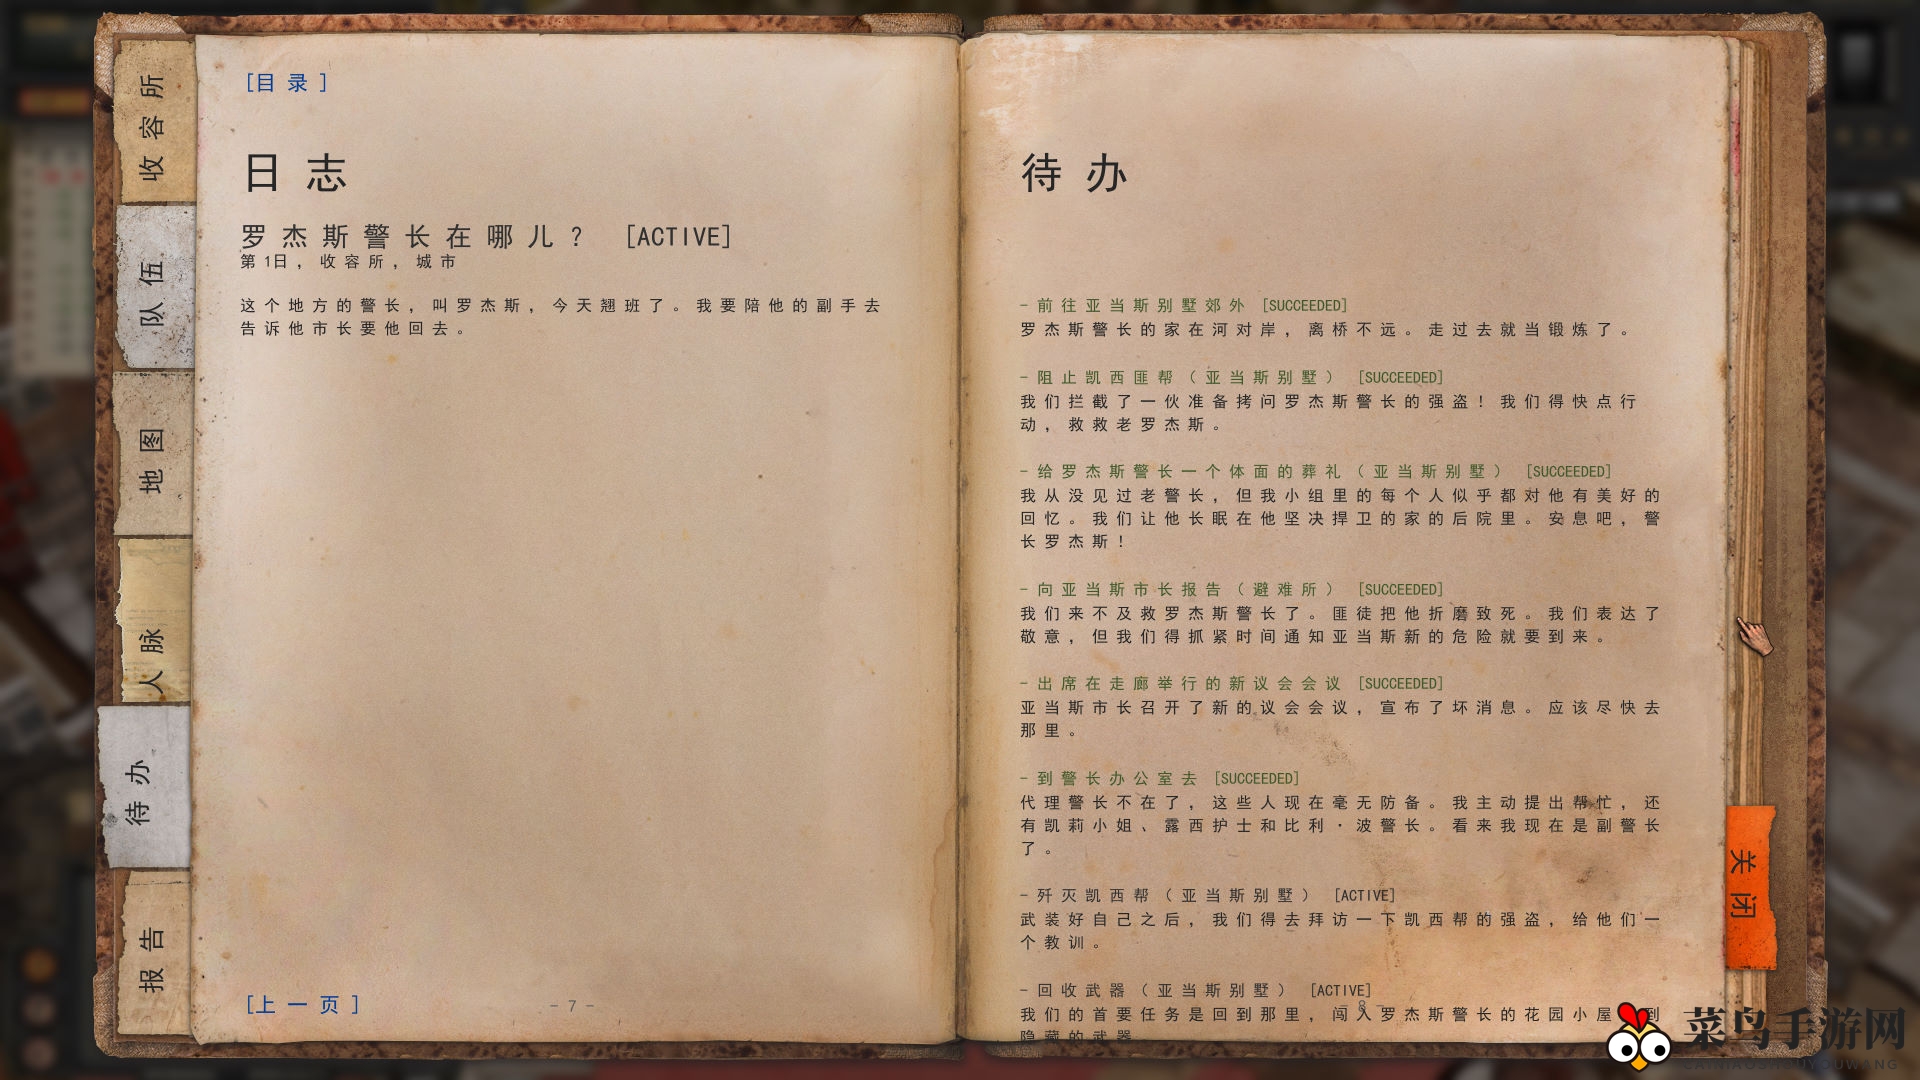 收容所
队伍
地图
人脉
待办
报告
[目录]
日志
罗杰斯警长在哪儿？ [ACTIVE]
第1日，收容所，城市
这个地方的警长，叫罗杰斯，今天翘班了。我要陪他的副手去
告诉他市长要他回去。
[上一页]
-7-
待办
-前往亚当斯别墅郊外 [SUCCEEDED]
罗杰斯警长的家在河对岸，离桥不远。走过去就当锻炼了。
-阻止凯西匪帮（亚当斯别墅） [SUCCEEDED]
我们拦截了一伙准备拷问罗杰斯警长的强盗！我们得快点行
动，救救老罗杰斯。
-给罗杰斯警长一个体面的葬礼（亚当斯别墅） [SUCCEEDED]
我从没见过老警长，但我小组里的每个人似乎都对他有美好的
回忆。我们让他长眠在他坚决捍卫的家的后院里。安息吧，警
长罗杰斯！
-向亚当斯市长报告（避难所） [SUCCEEDED]
我们来不及救罗杰斯警长了。匪徒把他折磨致死。我们表达了
敬意，但我们得抓紧时间通知亚当斯新的危险就要到来。
-出席在走廊举行的新议会会议 [SUCCEEDED]
亚当斯市长召开了新的议会会议，宣布了坏消息。应该尽快去
那里。
-到警长办公室去 [SUCCEEDED]
代理警长不在了，这些人现在毫无防备。我主动提出帮忙，还
有凯莉小姐、露西护士和比利·波警长。看来我现在是副警长
了。
-歼灭凯西帮（亚当斯别墅） [ACTIVE]
武装好自己之后，我们得去拜访一下凯西帮的强盗，给他们一
个教训。
-回收武器（亚当斯别墅） [ACTIVE]
-8-
我们的首要任务是回到那里，闯入罗杰斯警长的花园小屋 到
隐藏的武器
关闭
菜鸟手游网
CAINIAOSHOUYOUWANG